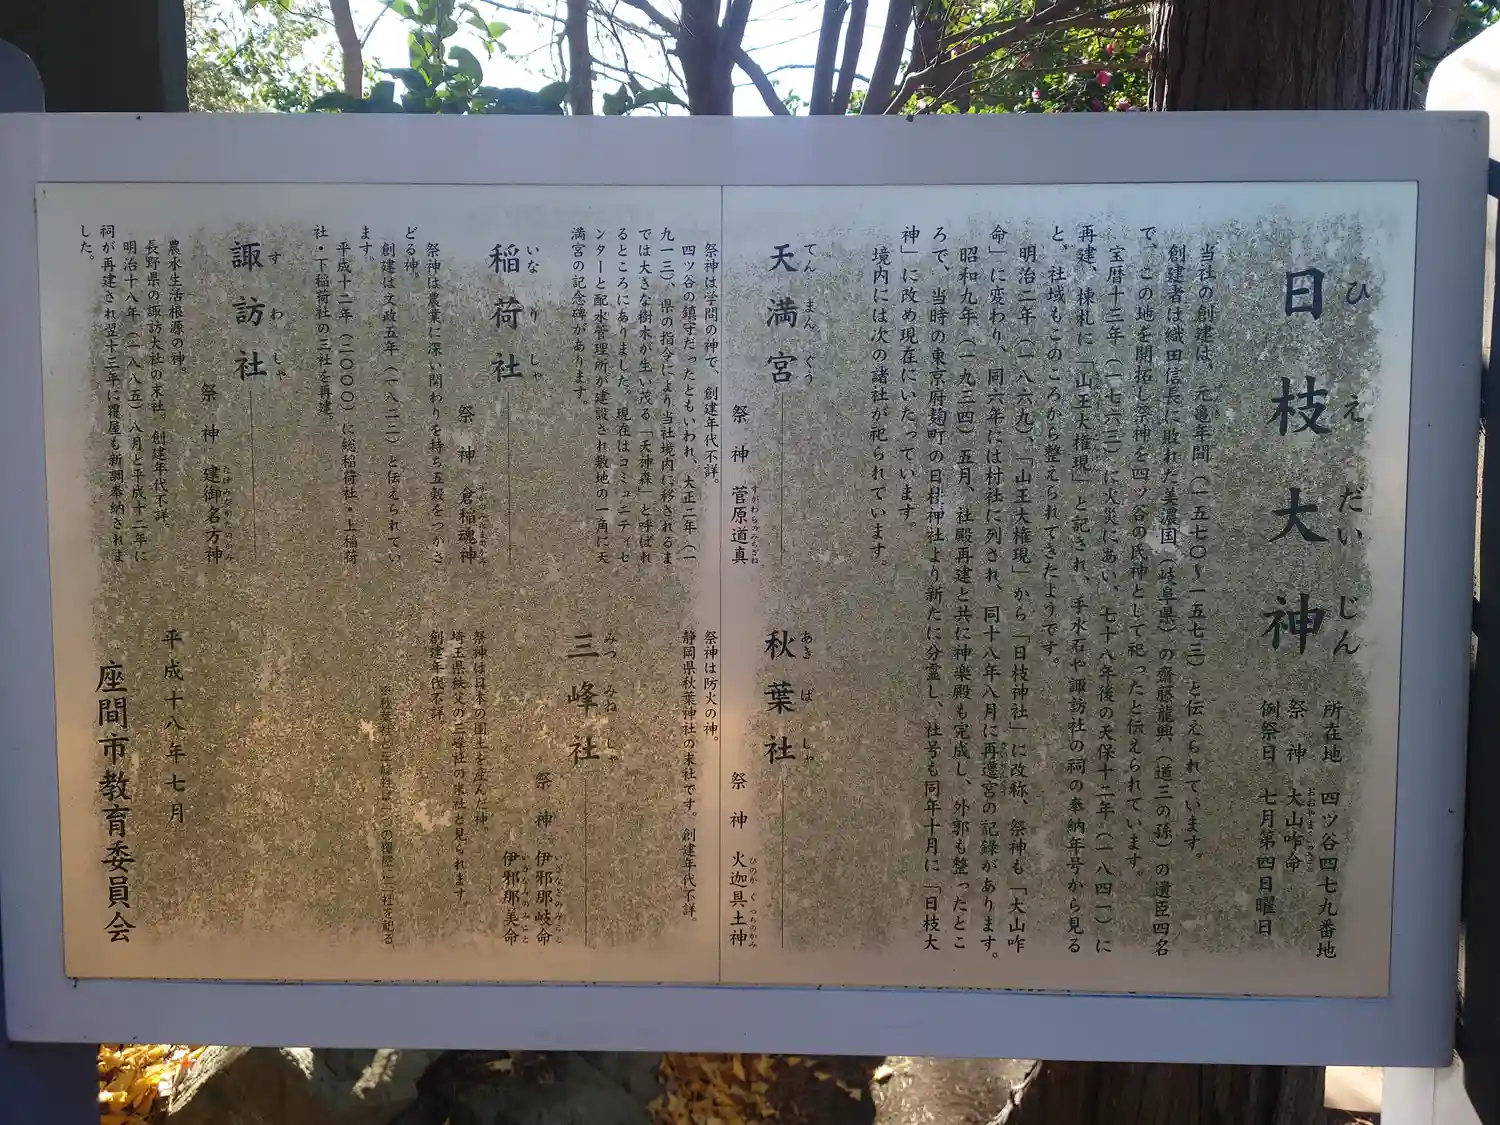 日枝大神
ひえだいじん
所在地　四ツ谷四七九番地
祭　神　大山咋命
例祭日　七月第四日曜日
当社の創建は、元亀年間（一五七〇～一五七三）と伝えられています。
創建者は織田信長に敗れた美濃国（岐阜県）の齋藤龍興（道三の孫）の遺臣四名
で、この地を開拓し祭神を四ツ谷の氏神として祀ったと伝えられています。
宝暦十三年（一七六三）に火災にあい、七十八年後の天保十二年（一八四一）に
再建、棟札に「山王大権現」と記され、手水石や諏訪社の祠の奉納年号から見る
と、社域もこのころから整えられてきたようです。
明治二年（一八六九）、「山王大権現」から「日枝神社」に改称、祭神も「大山咋
命」に変わり、同六年には村社に列され、同十八年八月に再遷宮の記録があります。
昭和九年（一九三四）五月、社殿再建と共に神楽殿も完成し、外郭も整ったとこ
ろで、当時の東京府麹町の日枝神社より新たに分霊し、社号も同年十月に「日枝大
神」に改め現在にいたっています。
境内には次の諸社が祀られています。
天満宮
てんまんぐう
祭　神　菅原道真
すがわらのみちざね
祭神は学問の神で、創建年代不詳。
四ツ谷の鎮守だったともいわれ、大正二年（一
九一三）、県の指令により当社境内に移されるま
では大きな樹木が生い茂る「天神森」と呼ばれ
るところにありました。現在はコミュニティセ
ンターと配水管理所が建設され敷地の一角に天
満宮の記念碑があります。
秋葉社
あきばしゃ
祭　神　火迦具土神
ひのかぐつちのかみ
祭神は防火の神。
静岡県秋葉神社の末社です。創建年代不詳。
稲荷社
いなりしゃ
祭　神　倉稲魂神
祭神は農業に深い関わりを持ち五穀をつかさ
どる神。
創建は文政五年（一八二二）と伝えられてい
ます。
平成十二年（二〇〇〇）に総稲荷社・上稲荷
社・下稲荷社の三社を再建。
三峰社
みつみねしゃ
祭　神　伊邪那岐命
いざなぎのみこと
伊邪那美命
いざなみのみこと
祭神は日本の国土を産んだ神。
埼玉県秩父の三峰社の末社と見られます。
創建年代不詳。
※秋葉社と三峰社は一つの覆屋に二社を祀る
諏訪社
すわしゃ
祭　神　建御名方神
たけみなかたのかみ
農水生活根源の神。
長野県の諏訪大社の末社。創建年代不詳。
明治十八年（一八八五）八月と平成十二年に
祠が再建され翌十三年に覆屋も新調奉納されま
した。
平成十八年七月
座間市教育委員会